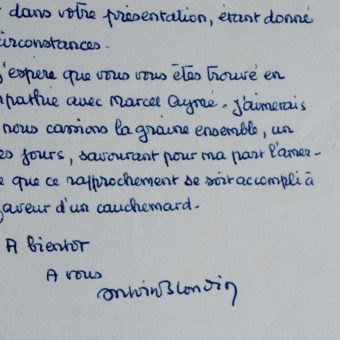 dans votre présentation, étant donné
irconstances.
j'espère que vous vous êtes trouvé en
pathie avec Marcel Aymé. J'aimerais
nous cassions la graine ensemble, un
es jours, savourant pour ma part l'amer-
e que ce rapprochement se soit accompli à
faveur d'un cauchemard.
A bientot
A vous
Antoine Blondin